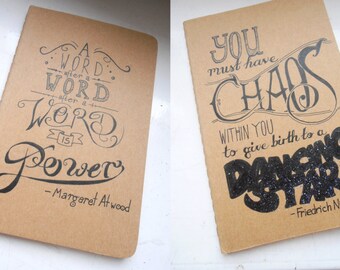 A
WORD
after a
WORD
after a
WORD
is
Power
- Margaret Atwood
YOU
must have
CHAOS
WITHIN YOU
to give birth to a
DANCING
STAR
- Friedrich N